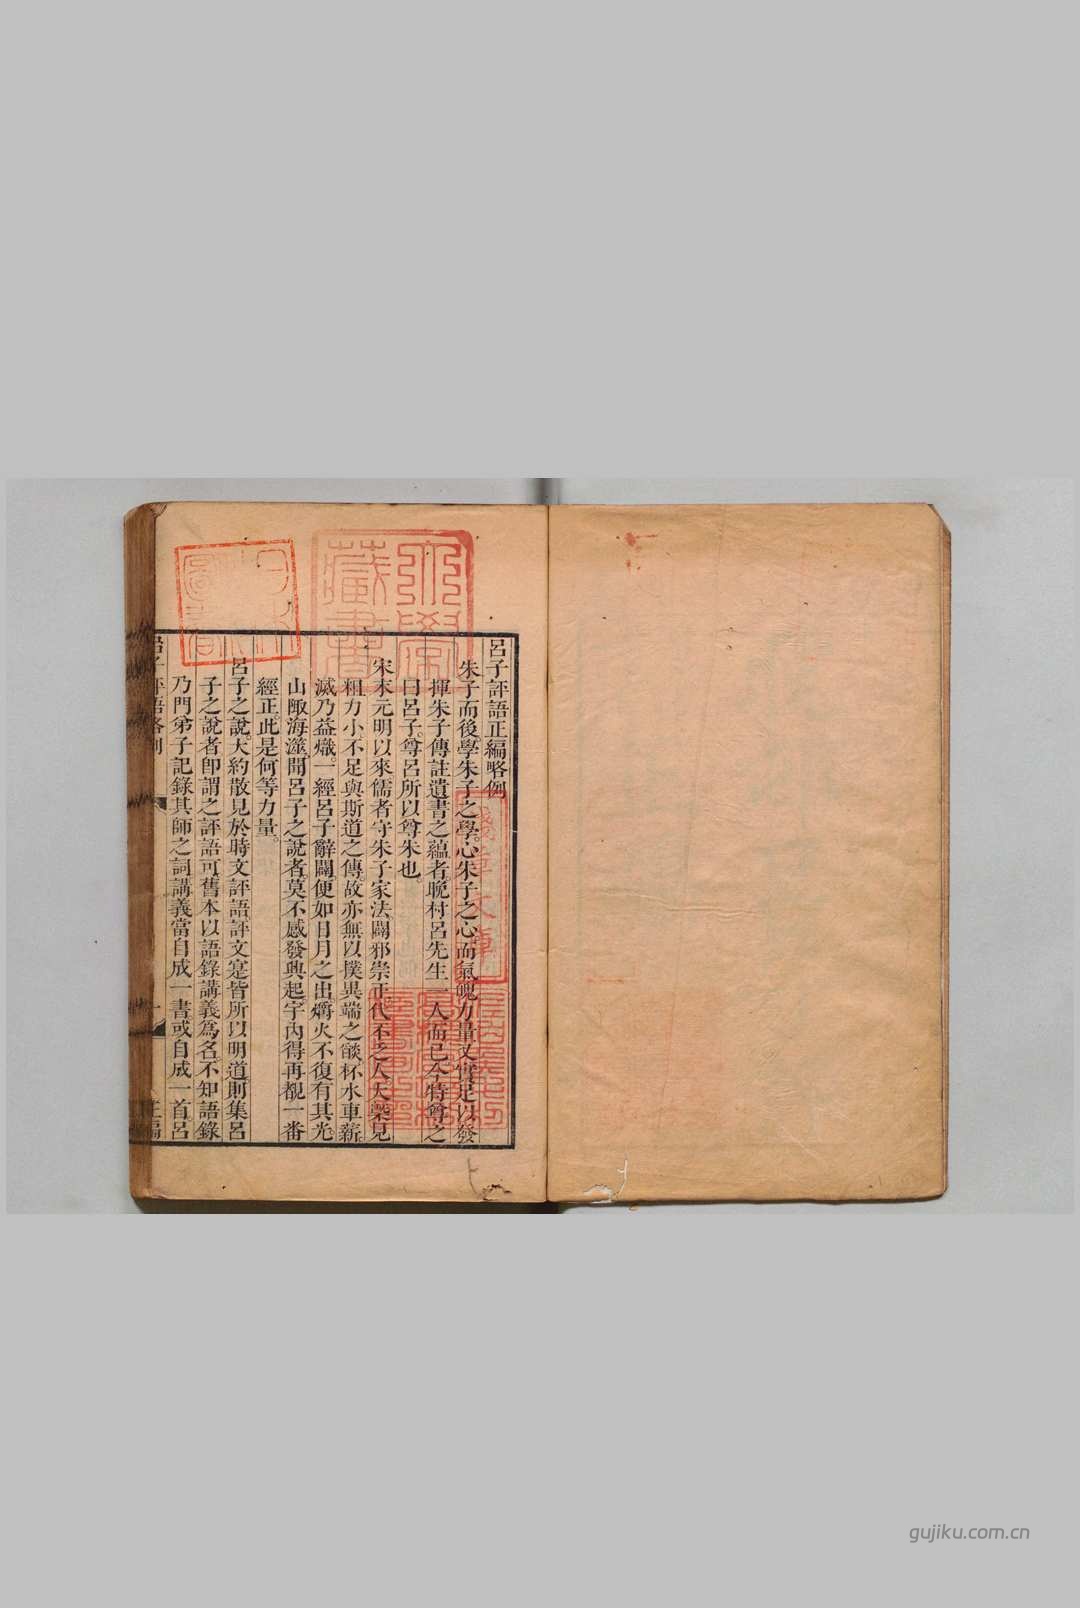 呂子評語正編略例
朱子而後。學朱子之學。心朱子之心。而氣魄力量又實足以發
揮朱子傳註遺書之蘊者。晚村呂先生一人而已。今特尊之
曰呂子。尊呂所以尊朱也。
宋末元明以來儒者。守朱子家法。闢邪崇正。代不乏人。大槩見
粗力小。不足與斯道之傳。故亦無以撲異端之燄。杯水車薪。
滅乃益熾。一經呂子辭闢。便如日月之出。爝火不復有其光。
山陬海澨。聞呂子之說者。莫不感發興起。宇內得再覩一番
經正。此是何等力量。
呂子之說。大約散見於時文評語。評文寔皆所以明道。則集呂
子之說者。卽謂之評語可。舊本以語錄講義爲名。不知語錄
乃門弟子記錄其師之詞。講義當自成一書。或自成一首。呂
呂子評語略例
正編
藏書
gujiku.com.cn